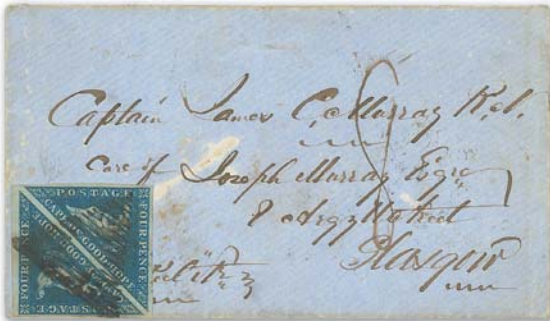 Captain James C. Murray R.N.
Care of Joseph Murray Esqre
8 Argyll Street
Glasgow
POSTAGE
FOUR PENCE
CAPE OF GOOD HOPE
CAPE OF GOOD HOPE
FOUR PENCE
POSTAGE